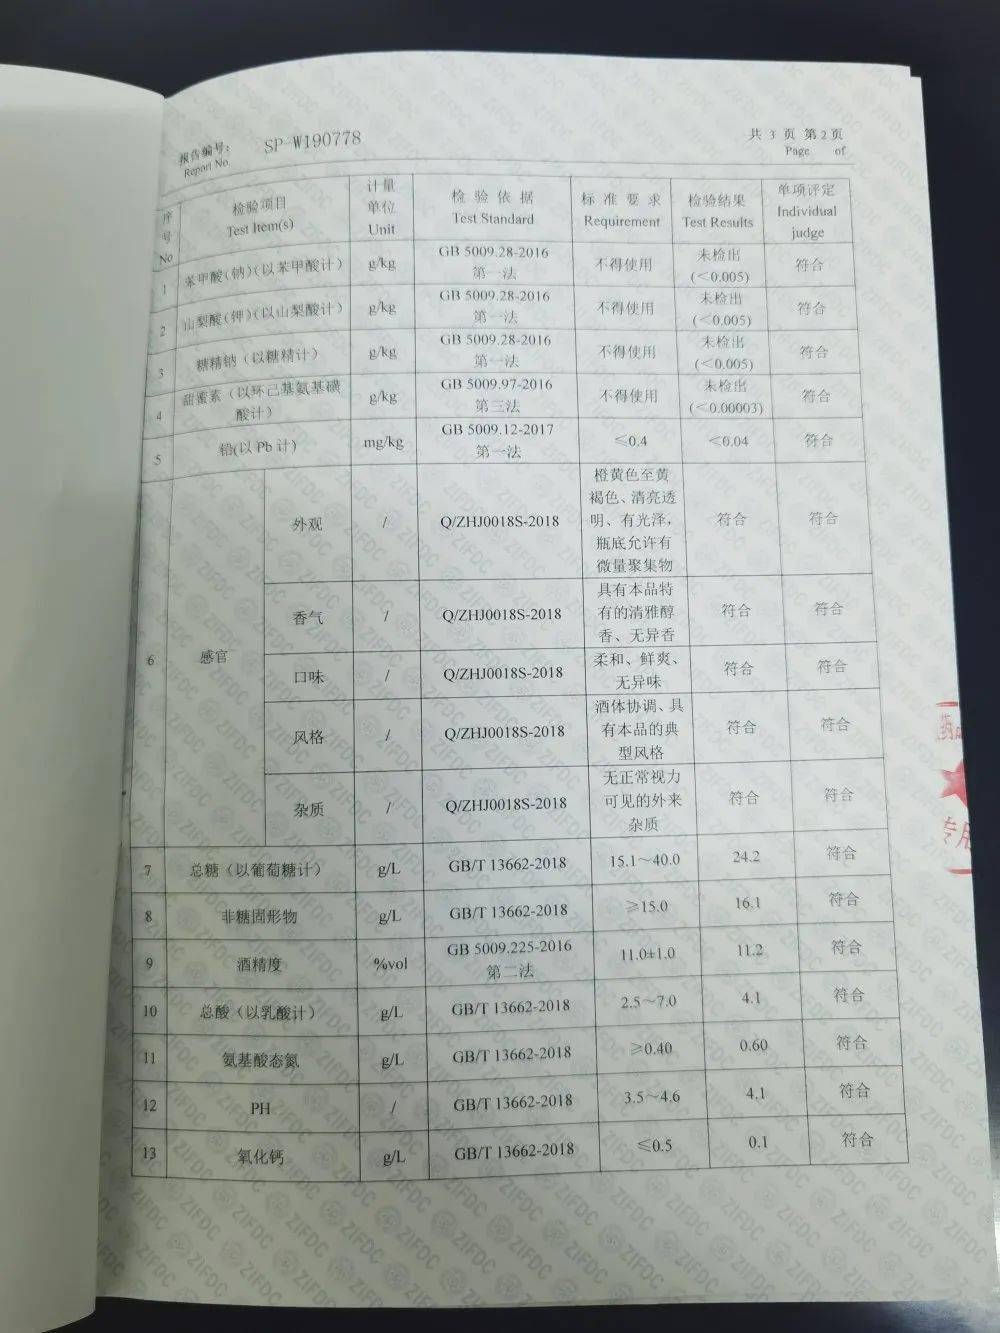 报告编号:
Report No.
SP-W190778
共 3 页 第2页
Page of
序号 No
检验项目
Test Item(s)
计量
单位
Unit
检 验 依 据
Test Standard
标 准 要 求
Requirement
检验结果
Test Results
单项评定
Individual
judge
1 苯甲酸(钠)(以苯甲酸计) g/kg GB 5009.28-2016
第一法 不得使用 未检出
(<0.005) 符合
2 山梨酸(钾)(以山梨酸计) g/kg GB 5009.28-2016
第一法 不得使用 未检出
(<0.005) 符合
3 糖精钠(以糖精计) g/kg GB 5009.28-2016
第一法 不得使用 未检出
(<0.005) 符合
4 甜蜜素(以环己基氨基磺
酸计) g/kg GB 5009.97-2016
第三法 不得使用 未检出
(<0.00003) 符合
5 铅(以Pb计) mg/kg GB 5009.12-2017
第一法 ≤0.4 <0.04 符合
6 感官
外观 / Q/ZHJ0018S-2018 橙黄色至黄
褐色、清亮透
明、有光泽,
瓶底允许有
微量聚集物 符合 符合
香气 / Q/ZHJ0018S-2018 具有本品特
有的清雅醇
香、无异香 符合 符合
口味 / Q/ZHJ0018S-2018 柔和、鲜爽、
无异味 符合 符合
风格 / Q/ZHJ0018S-2018 酒体协调、具
有本品的典
型风格 符合 符合
杂质 / Q/ZHJ0018S-2018 无正常视力
可见的外来
杂质 符合 符合
7 总糖(以葡萄糖计) g/L GB/T 13662-2018 15.1~40.0 24.2 符合
8 非糖固形物 g/L GB/T 13662-2018 ≥15.0 16.1 符合
9 酒精度 %vol GB 5009.225-2016
第二法 11.0±1.0 11.2 符合
10 总酸(以乳酸计) g/L GB/T 13662-2018 2.5~7.0 4.1 符合
11 氨基酸态氮 g/L GB/T 13662-2018 ≥0.40 0.60 符合
12 PH / GB/T 13662-2018 3.5~4.6 4.1 符合
13 氧化钙 g/L GB/T 13662-2018 ≤0.5 0.1 符合
ZIFDC